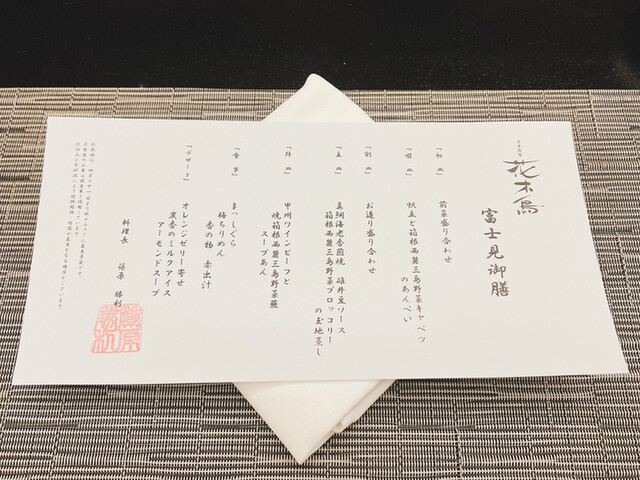 日本料理
花木鳥
富士見御膳
「初皿」
前菜盛り合わせ
「椀皿」
帆立と箱根西麓三島野菜キャベツ
のあんぺい
「割皿」
お造り盛り合わせ
「主皿」
真鯛海老香煎焼 碓井豆ソース
箱根西麓三島野菜ブロッコリー
の玉地蒸し
「絆皿」
甲州ワインビーフと
焼箱根西麓三島野菜蕪
スープあん
「食事」
まっしぐら
梅ちりめん
香の物 赤出汁
「デザート」
オレンジゼリー寄せ
蜜香のミルクアイス
アーモンドスープ
料理長
勝利